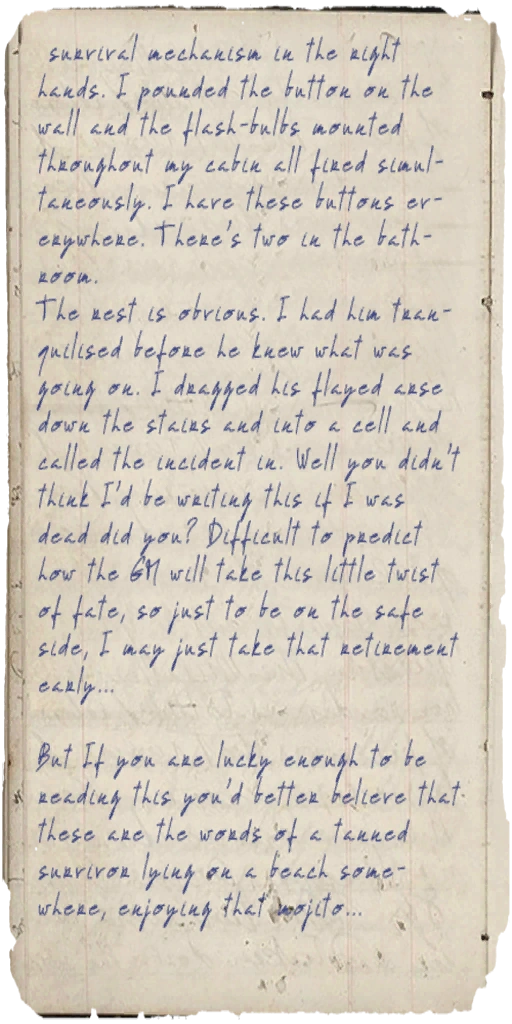 survival mechanism in the right
hands. I pounded the button on the
wall and the flash-bulbs mounted
throughout my cabin all fired simul-
taneously. I have these buttons ev-
erywhere. There's two in the bath-
room.
The rest is obvious. I had him tran-
quilised before he knew what was
going on. I dragged his flayed arse
down the stairs and into a cell and
called the incident in. Well you didn't
think I'd be writing this if I was
dead did you? Difficult to predict
how the GM will take this little twist
of fate, so just to be on the safe
side, I may just take that retirement
early...
But If you are lucky enough to be
reading this you'd better believe that
these are the words of a tanned
survivor lying on a beach some-
where, enjoying that mojito...